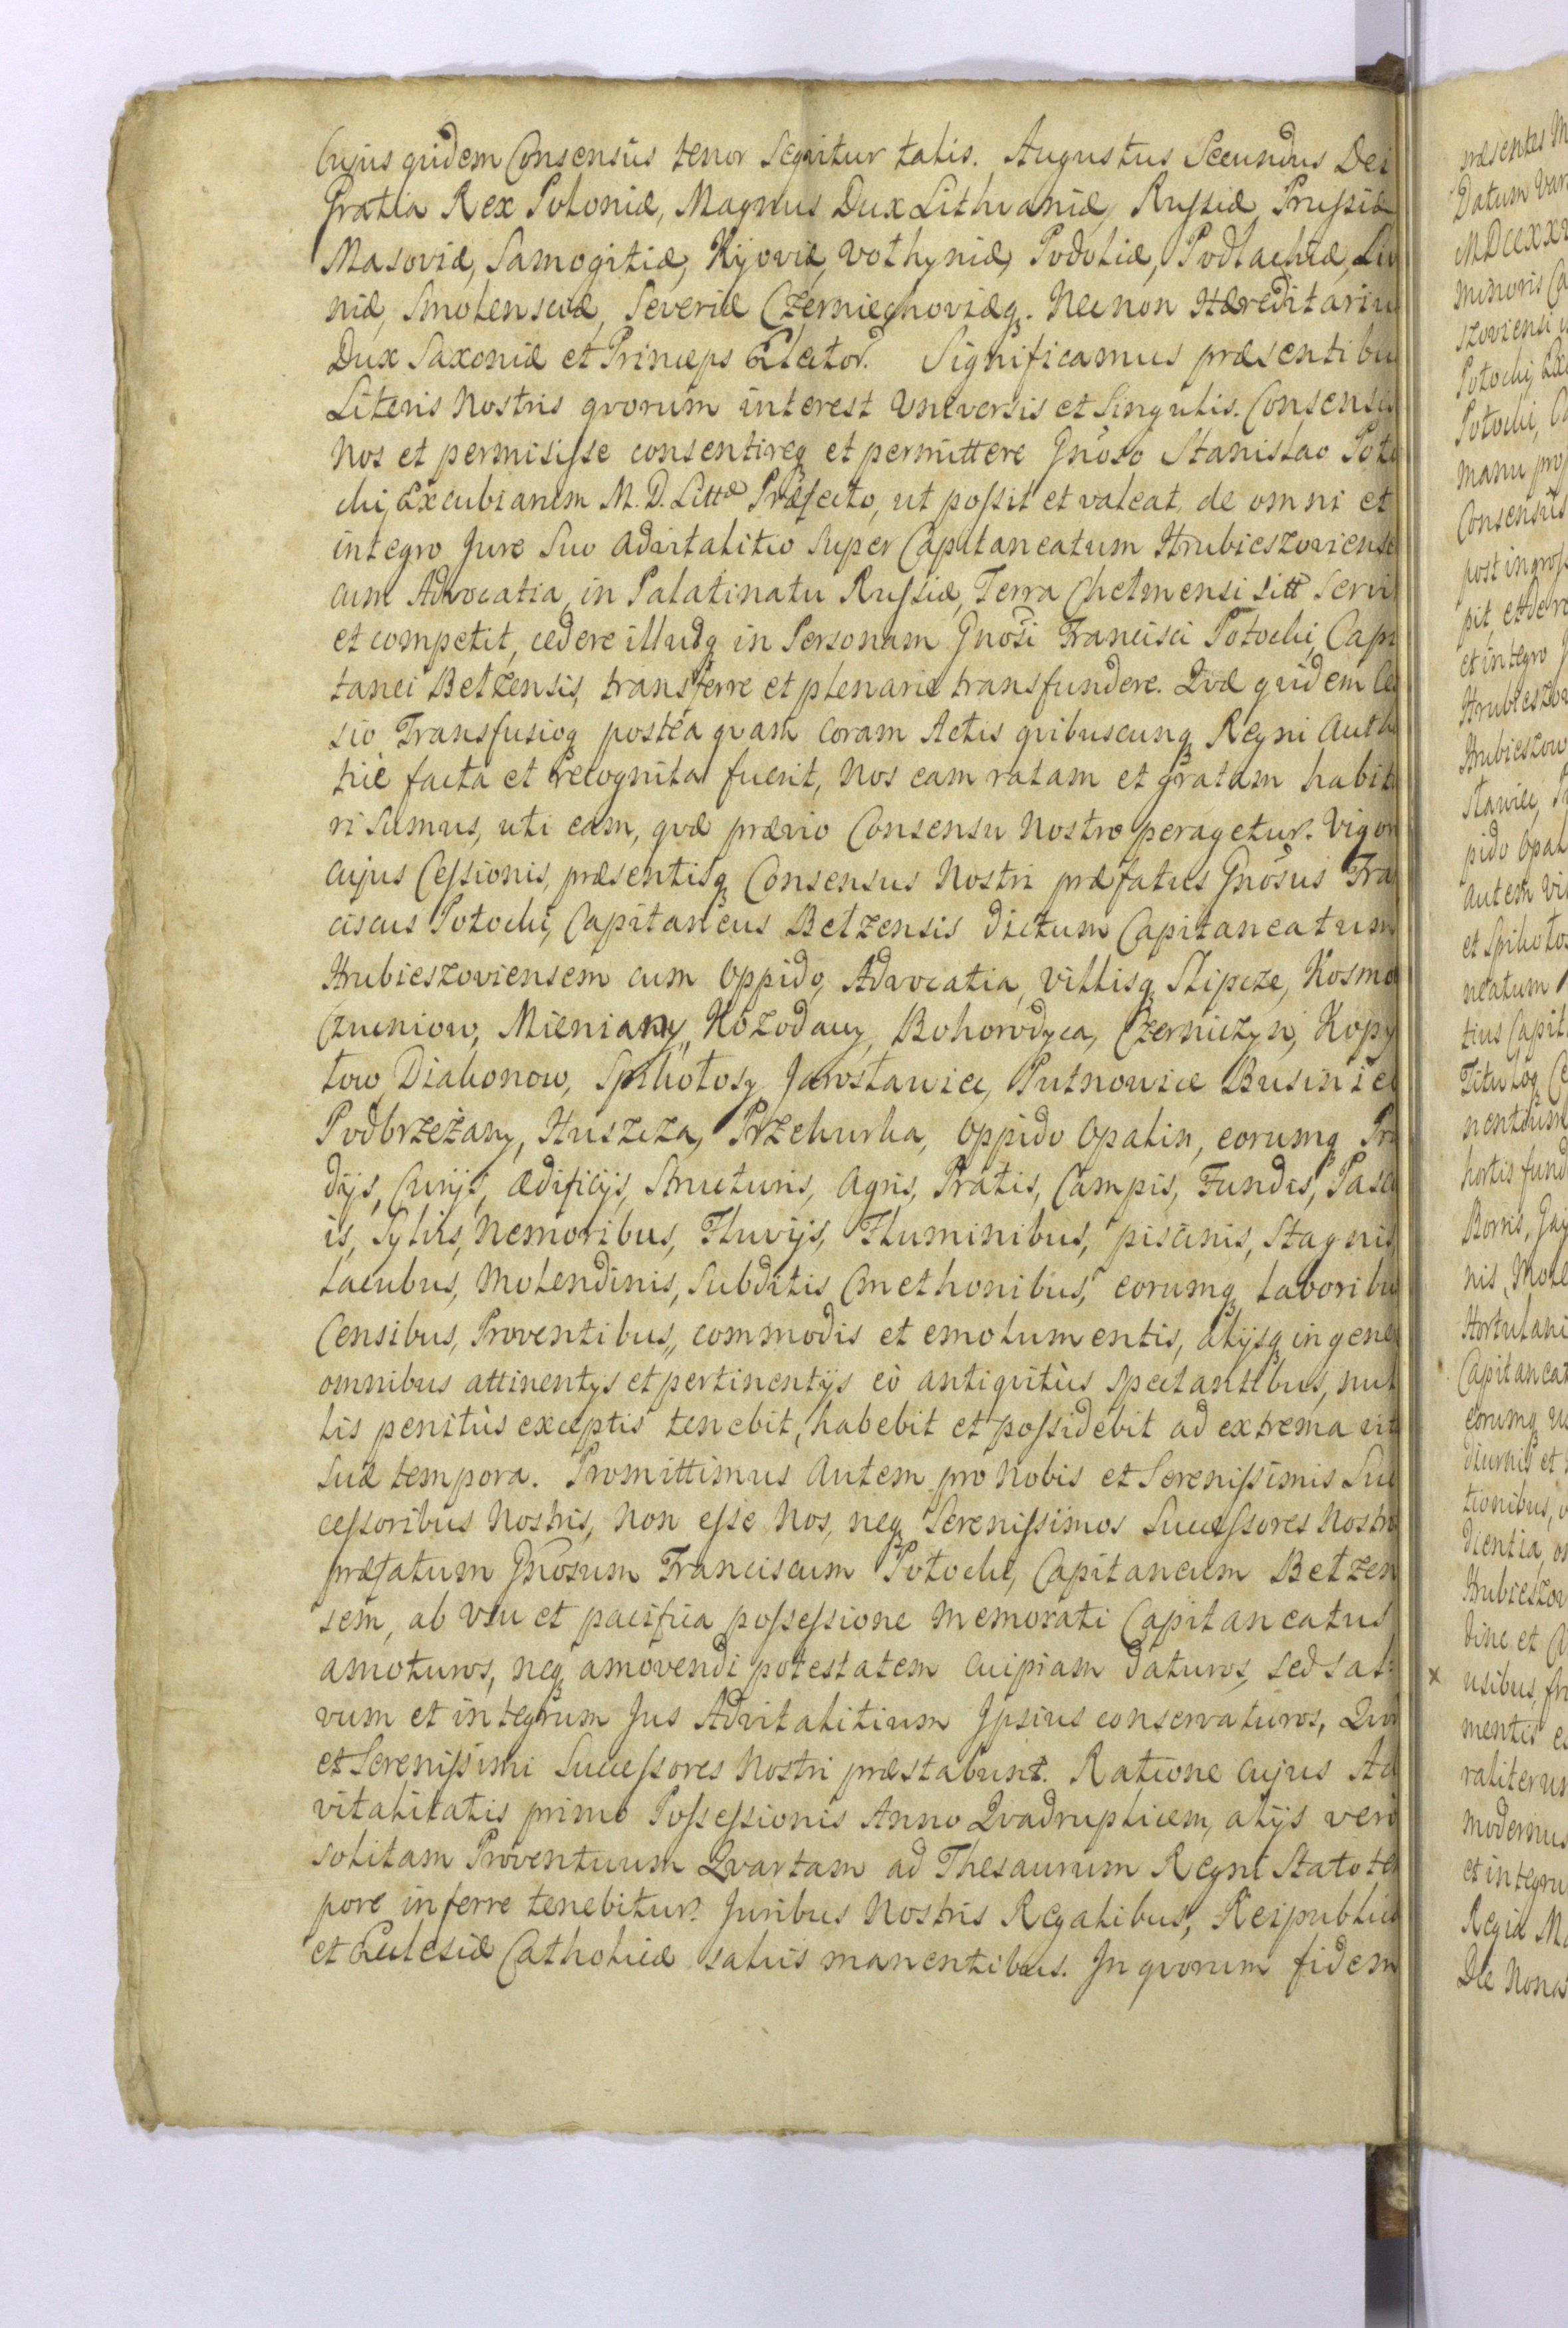 Cujus quidem Consensûs tenor sequitur talis. Augustus Secundus Dei
Gratia Rex Poloniæ, Magnus Dux Lithvaniæ, Russiæ Prussiæ
Masoviæ, Samogitiæ, Kijoviæ, Volhyniæ, Podoliæ, Podlachiæ, Liv
niæ, Smolensciæ, Severiæ Czerniechoviæq. Nec non Hæreditariu
Dux Saxoniæ et Princeps Elector. Significamus præsentibu
Literis Nostris qvorum interest Vniversis et Singulis. Consensis
Nos et permisisse consentireq et permittere Gnoso Stanislao Poto
cki, Excubiarum M. D. Littæ Præfecto, ut possit et valeat, de omni et
integro Jure Suo Advitalitio Super Capitaneatum Hrubieszoviense
cum Advocatia, in Palatinatu Russiæ, Terra Chelmensi sitt Servi
et competit, cedere illudq in Personam Gnosi Francisci Potocki, Capi
tanei Belzensis, transferre et plenarie transfundere. Qvæ quidem Ces
sio Transfusioq posteaqvam Coram Actis qvibuscunq Regni Authen
ticè facta et recognita fuerit, Nos eam ratam et gratam habitu
ri Sumus, uti eam, qvæ prævio Consensu Nostro peragetur. Vigore
cujus Cessionis, præsentisq Consensus Nostri præfatus Gnosus Fra
ciscus Potocki, Capitaneus Belzensis dictum Capitaneatum
Hrubieszoviensem cum Oppido, Advocatia, villisq Slipcze, Kosmo
Czuniow, Mieniany, Kozodawy, Bohorodyca, Czerniczyn, Kopy
tow, Diakonow, Spikolosy Jarosławice, Putnowice Businice
Podbrzeżany, Huszcza, Przekurka, Oppido Opalin, eorumq Præ
dijs, Curijs, ædificijs, Structuris, Agris, Pratis, Campis, Fundis, Pascu
is, Sylvis, Nemoribus, Fluvijs, Fluminibus, piscinis, Stagnis
Lacubus, Molendinis, Subditis Cmethonibus, eorumq laboribu
Censibus, Proventibus, commodis et emolumentis, alijsq in gene
omnibus attinentijs et pertinentijs eò antiqvitùs spectantibus, nul
lis penitùs exceptis tenebit, habebit et possidebit ad extrema vit
Suæ tempora. Promittimus autem pro Nobis et Serenissimis Suc
cessoribus Nostris, Non esse Nos, neq Serenissimos Successores Nostro
præfatum Gnosum Franciscum Potocki, Capitaneum Belzen
sem, ab Vsu et pacifica possessione memorati Capitaneatus
amoturos, neq amovendi potestatem cuipiam daturos, sed sal:
vum et integrum Jus Advitalitium Ipsius conservaturos, Qvo
et Serenissimi Successores Nostri præstabunt. Ratione cujus Ad
vitalitatis primo Possessionis Anno Qvadruplicem, alijs verò
solitam Proventuum Qvartam ad Thesaurum Regni Statote
pore inferre tenebitur. Juribus Nostris Regalibus, Reipublicæ
et Ecclesiæ Catholicæ salvis manentibus. In qvorum fidem
præsentes M
Datum Var
MDCCXX
minoris Ca
szoviensi
Potocki,
Potocki, C
manu pro
Consensûs
post ingross
pit, et de re
et integro J
Hrubieszov
Hrubieszow
sławice, P
pido Opal
autem vi
et Spikolos
neatum
tius Capit
Tituloq Ce
nentium
hortis fund
Borris, Gaj
nis, Mole
Hortulani
Capitaneat
eorumq
diurnis et
tionibus,
dientia, o
Hrubieszov
dine et
× usibus, fr
mentis e
raliter
modernus
et integru
Regia Ma
Die Nona